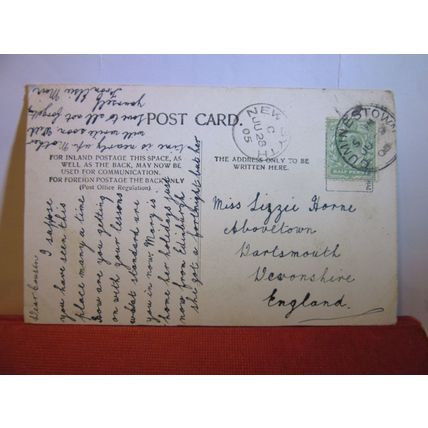 POST CARD.
FOR INLAND POSTAGE THIS SPACE, AS
WELL AS THE BACK, MAY NOW BE
USED FOR COMMUNICATION.
FOR FOREIGN POSTAGE THE BACK ONLY
(Post Office Regulation)
THE ADDRESS ONLY TO BE
WRITTEN HERE.
Miss Lizzie Horne
Abovetown
Dartmouth
Devonshire
England.
Dear Cousin
I suppose
you have seen this
place many a time
how are you getting
on with your lessons
what standard are
you in now. Mary is
home her holidays just
now from Edinburgh
she got a fortnight but her
time is nearly up. Mother
will write soon. With
love to all not forgetting
yourself
From
NEW
C
JU 26
05
HALF PENNY